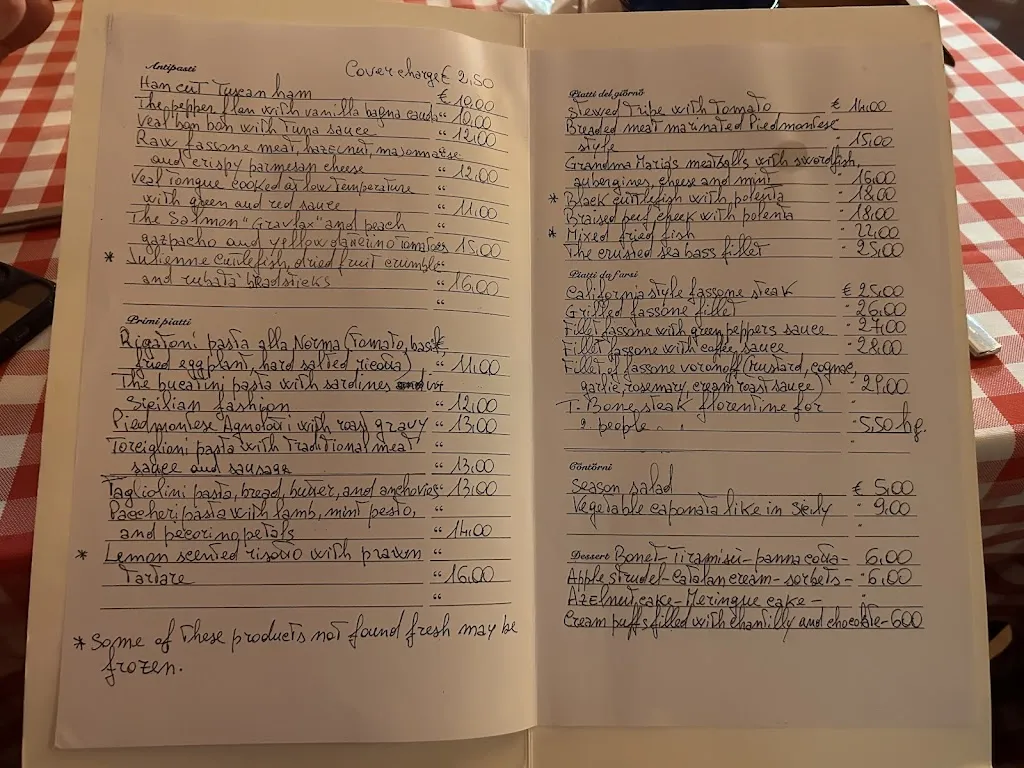 Antipasti
Cover charge € 2,50
Han cut Tuscan ham € 10,00
The pepper flan with vanilla bagna cauda “ 10,00
Veal bon bon with Tuna sauce “ 12,00
Raw fassone meat, hazelnut, maionnaise
and crispy parmesan cheese “ 12,00
Veal Tongue cooked at low Temperature
with green and red sauce “ 11,00
The Salmon "Gravlax" and peach
gazpacho and yellow datterino tomatoes 15,00
* Julienne cuttlefish, dried fruit crumble “
and rubatà breadsticks “ 16,00
“
Primi piatti
Rigatoni pasta alla Norma (Tomato, basil, €
fried eggplant, hard salted ricotta) “ 11,00
The bucatini pasta with sardines in
Sicilian fashion “ 12,00
Piedmontese Agnolotti with roast gravy “ 13,00
Torciglioni pasta with Traditional meat
sauce and sausage “ 13,00
Tagliolini pasta, bread, butter, and anchovies “ 13,00
Paccheri pasta with lamb, mint pesto,
and pecorino petals “ 14,00
* Lemon scented risotto with prawn
Tartare “ 16,00
“
* Some of These products not found fresh may be
frozen.
Piatti del giorno
Stewed Tripe with Tomato € 14,00
Breaded meat marinated Piedmontese
style 15,00
Grandma Maria's meatballs with swordfish,
aubergines, cheese and mint 16,00
* Black cuttlefish with polenta 18,00
Braised beef cheek with polenta 18,00
* Mixed fried fish 22,00
The crusted sea bass fillet 25,00
Piatti da farsi
California style fassone steak € 25,00
Grilled fassone fillet “ 26,00
Fillet fassone with green peppers sauce “ 27,00
Fillet fassone with coffee sauce “ 28,00
Fillet of fassone voronoff (Mustard, cognac,
garlic, rosemary, cream roast sauce) “ 29,00
T. Bone steak florentine for “
2 people “ 5,50 hg.
“
Contorni
Season salad € 5,00
Vegetable caponata like in Sicily “ 9,00
Dessert Bonet - Tiramisù - panna cotta - 6,00
Apple strudel - Catalan cream - sorbets - “ 6,00
Azelnut cake - Meringue cake - “
Cream puffs filled with chantilly and chocolate - 600